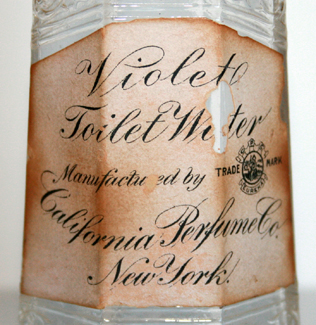 Violet
Toilet W ter
Manufactu ed by TRADE MARK
California Perfume Co.
New York.